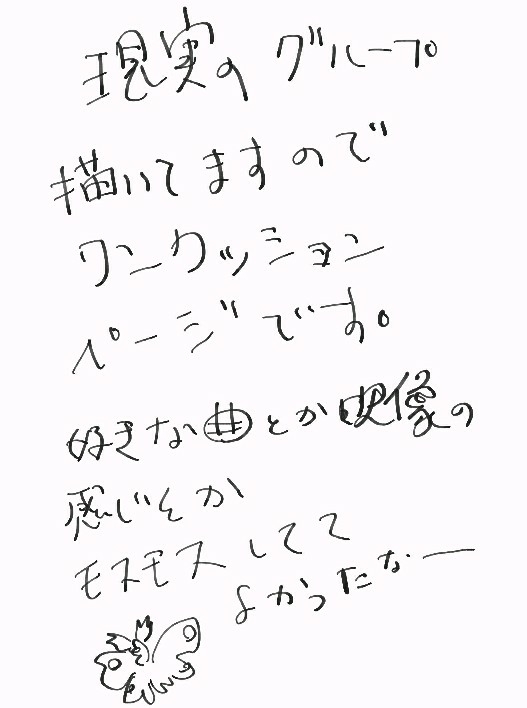 現実のグループ
描いてますので
ワンクッション
ページです。
好きな曲とか映像の
感じとか
モスモスしてて
よかったなー